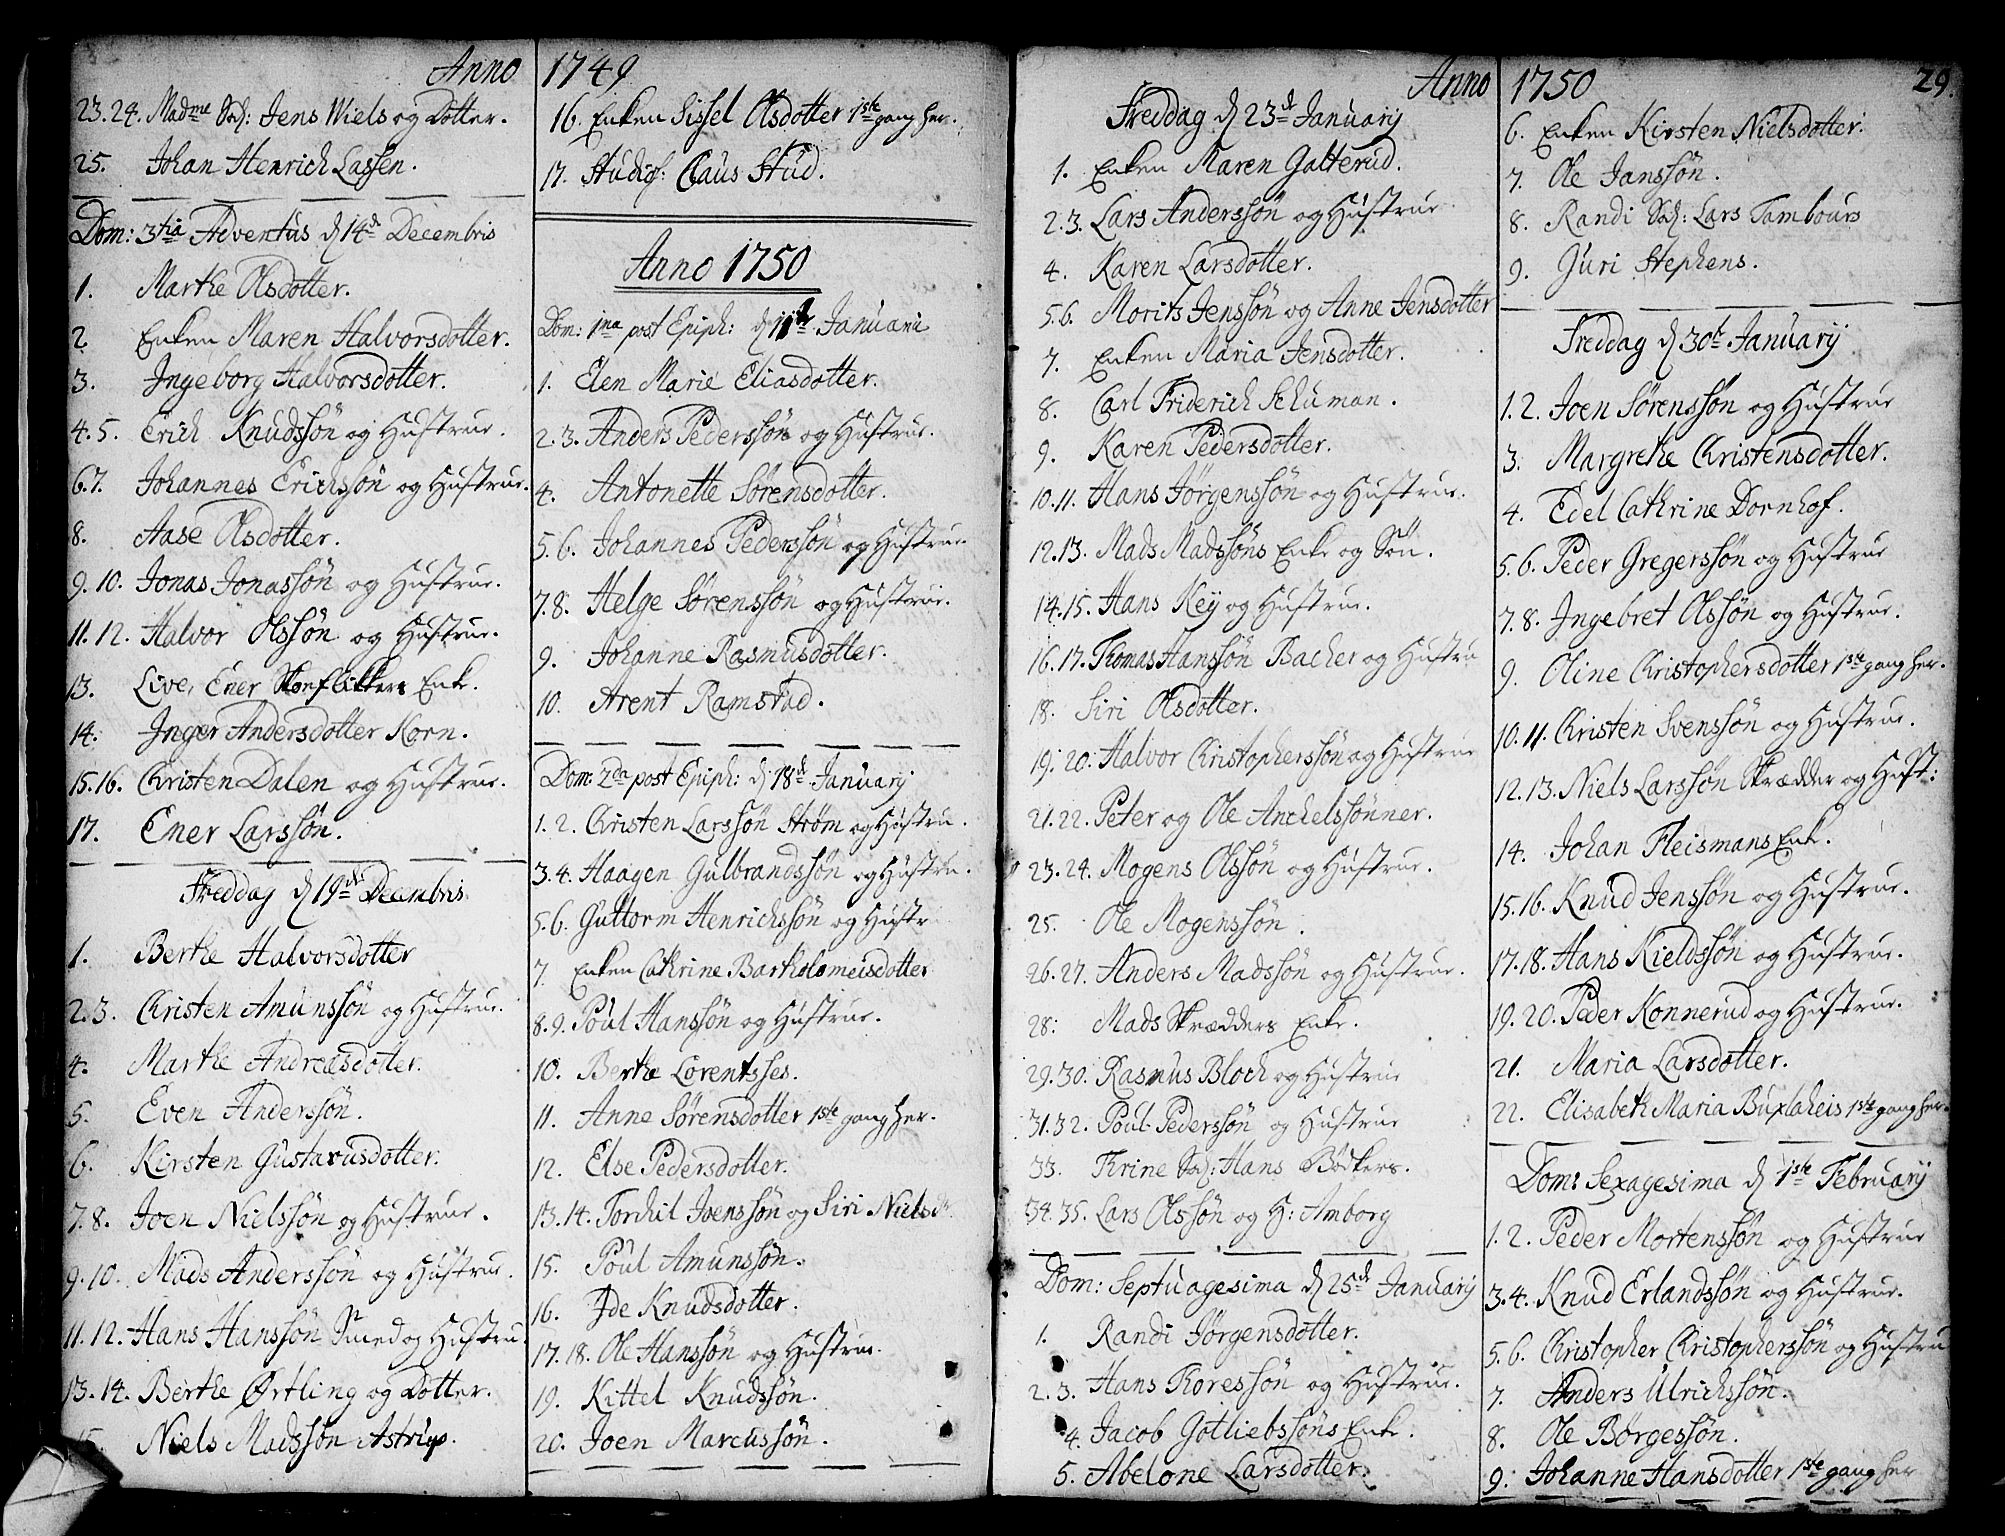 Anno 1749
23.24. Madme Sal: Jens Niels og Dotter.
25. Johan Henrich Lassen.
Dom: 3tia Adventus d 14de Decembris
1. Marthe Olsdotter.
2 Enken Maren Halvorsdotter.
3. Ingeborg Halvorsdotter.
4.5. Erich Knudssön og Hustrue.
6.7. Johannes Erichssön og Hustrue.
8. Aase Olsdotter.
9.10. Jonas Jonassön og Hustrue.
11.12. Halvor Olssön og Hustrue.
13. Live, Ener Enke.
14. Inger Andersdotter Korn.
15.16. Christen Dalen og Hustrue.
17. Ener Larssön.
Freddag d 19de Decembris
1. Berthe Halvorsdotter
2.3. Christen Amunssön og Hustrue.
4. Marthe Andreæsdotter.
5. Even Anderssön.
6. Kirsten Gustavusdotter.
7.8. Joen Nielssön og Hustrue.
9.10. Mads Anderssön og Hustrue.
11.12. Hans Hanssön Smed og Hustru.
13.14. Berthe Ørtling og Dotter.
15. Niels Madssön Astrup.
16. Enken Sissel Olsdotter 1ste gang her.
17. Studios: Claus Stud.
Anno 1750
Dom: 1ma post Epiph: d 11te Januarii
1. Elen Marie Eliasdotter.
2.3. Anders Pederssön og Hustrue.
4. Antonette Sörensdotter.
5.6. Johannes Pederssön og Hustrue.
7.8. Helge Sörenssön og Hustrue.
9. Johanne Rasmusdotter.
10. Arent Ramstad.
Dom: 2da post Epiph: d 18de Januarij
1.2. Christen Larssön Ström og Hustru.
3.4. Haagen Gulbrandssön og Hustru.
5.6. Guttorm Henrichssön og Hustr
7 Enken Cathrine Bartholomeisdotter
8.9. Poul Hanssön og Hustrue.
10. Berthe Lorentsses.
11. Anne Sörensdotter 1ste gang her.
12. Else Pedersdotter.
13.14. Torchil Joenssön og Siri Nielsd
15. Poul Amunssön.
16. Ide Knudsdotter.
17.18. Ole Hanssön og Hustrue.
19. Kittel Knudssön.
20. Joen Marcussön.
Anno 1750 29.
Freddag d 23de Januarij
1. Enken Maren Galterud.
2.3. Lars Anderssön og Hustrue
4. Karen Larsdotter.
5.6. Morits Jenssön og Anne Jensdotter
7. Enken Maria Jensdotter.
8. Carl Friderich Schuman.
9. Karen Pedersdotter.
10.11. Hans Jörgenssön og Hustrue.
12.13. Mads Madssöns Enke og Sön.
14.15. Hans Keÿ og Hustrue.
16.17. Thomas Hanssön Bacher og Hustru
18. Siri Olsdotter.
19.20. Halvor Christopherssön og Hustrue
21.22. Peter og Ole Anchelssönner.
23.24. Mogens Olssön og Hustrue.
25. Ole Mogenssön.
26.27. Anders Madssön og Hustrue.
28. Mads Skrædders Enke.
29.30. Rasmus Bloch og Hustrue
31.32. Poul Pederssön og Hustrue
33. Thrine Sal: Hans Bödkers.
34.35. Lars Olssön og H: Amborg
Dom: Septuagesima d 25de Januarij
1. Randi Jörgensdotter.
2.3. Hans Thoressön og Hustrue.
4. Jacob Gotliebssöns Enke.
5. Abelone Larsdotter.
6. Enken Kirsten Nielsdotter.
7. Ole Janssön.
8. Randi Sal: Lars Tambours
9. Guri Stephens.
Freddag d 30te Januarij
1.2. Joen Sörenssön og Hustrue
3. Margrethe Christensdotter.
4. Edel Cathrine Dornhof.
5.6. Peder Gregerssön og Hustrue
7.8. Ingebret Olssön og Hustrue.
9. Oline Christophersdotter 1ste gang her.
10.11. Christen Svenssön og Hustrue.
12.13. Niels Larssön Skrædder og Hust:
14. Johan Fleismans Enke.
15.16. Knud Jenssön og Hustrue.
17.18. Hans Kieldssön og Hustrue.
19.20. Peder Konnerud og Hustrue.
21. Maria Larsdotter.
22. Elisabeth Maria Buxlaheis 1ste gang her.
Dom: Sexagesima d 1ste Februarij
1.2. Peder Mortenssön og Hustrue
3.4. Knud Erlandssön og Hustrue.
5.6. Christopher Christopherssön og Hustru
7. Anders Ulrichssön.
8. Ole Börgessön.
9. Johanne Hansdotter 1ste gang her